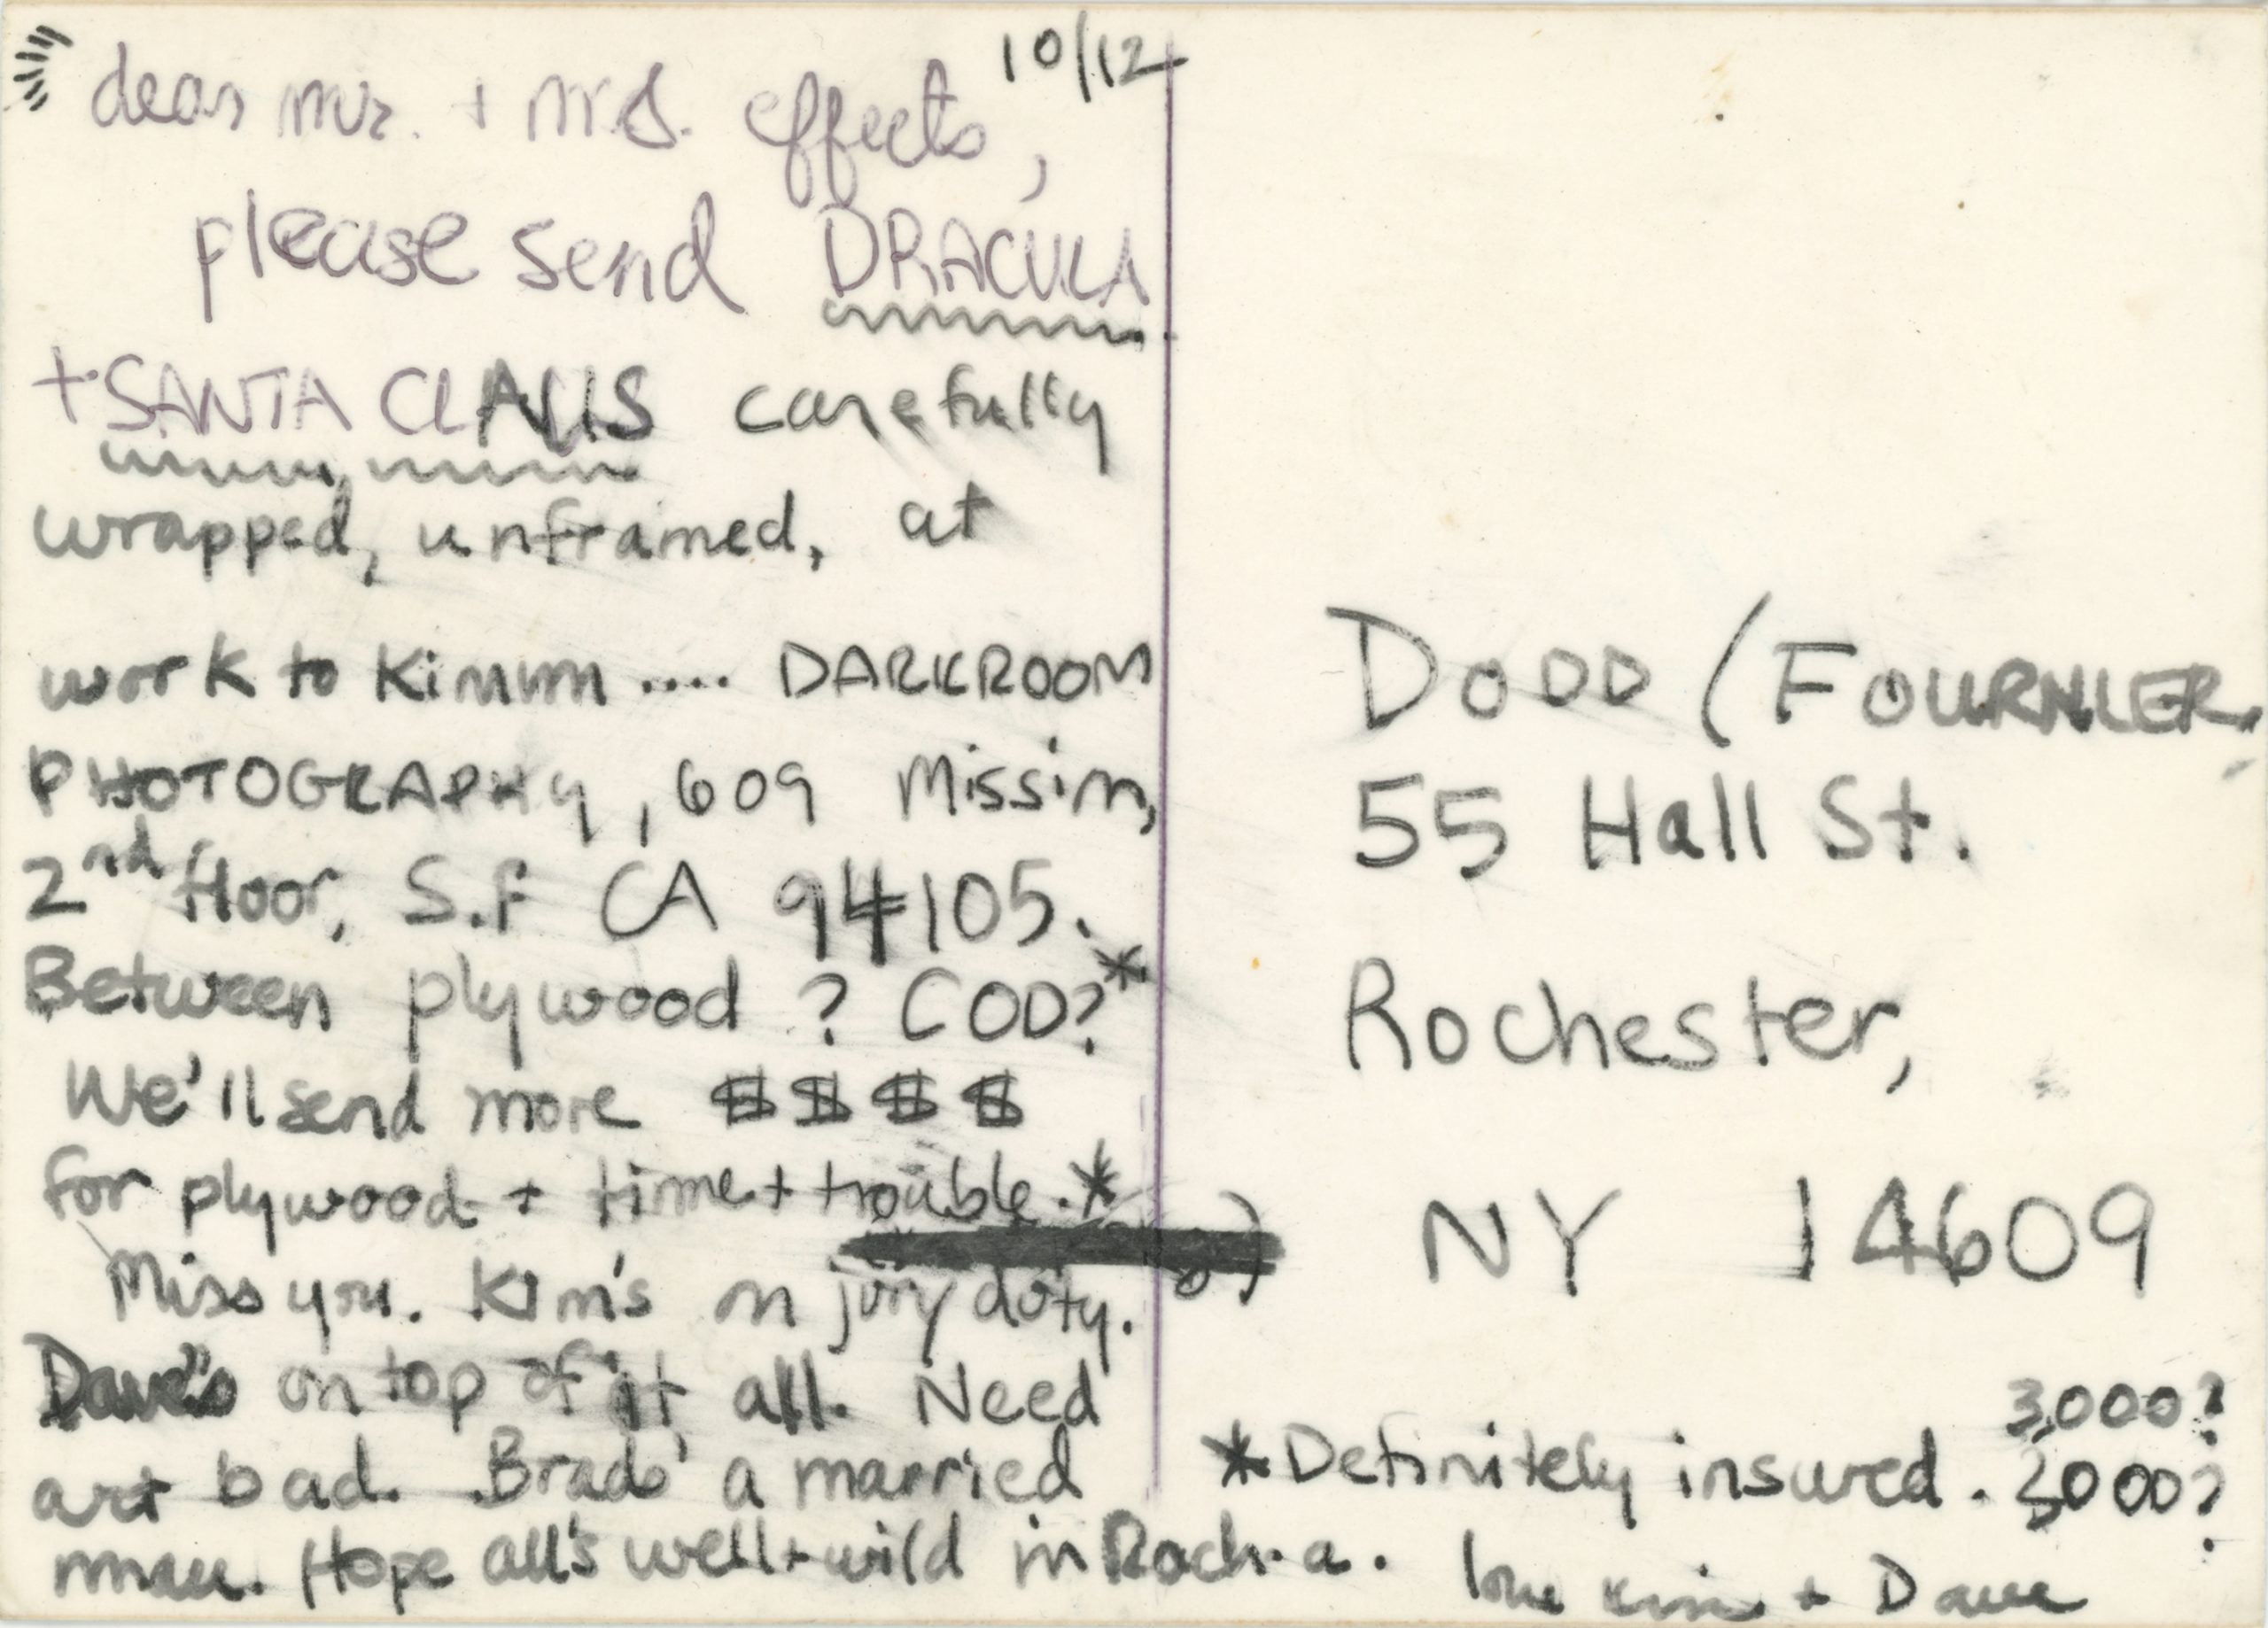 10/12
dear mr. + mrs. effects,
please send DRACULA
+ SANTA CLAUS carefully
wrapped, unframed, at
work to Kimm .... DARKROOM
PHOTOGRAPHY, 609 Mission,
2nd floor, S.F CA 94105.
Between plywood? COD?*
We'll send more $ $ $ $
for plywood + time + trouble.*
Miss you. Kim's on jury duty.
Dave's on top of it all. Need
art bad. Brad's a married
man. Hope all's well + wild in Roch. a.
love Kim + Dave
DODD (FOURNIER
55 Hall St.
Rochester,
NY 14609
3,000?
*Definitely insured. 3000?